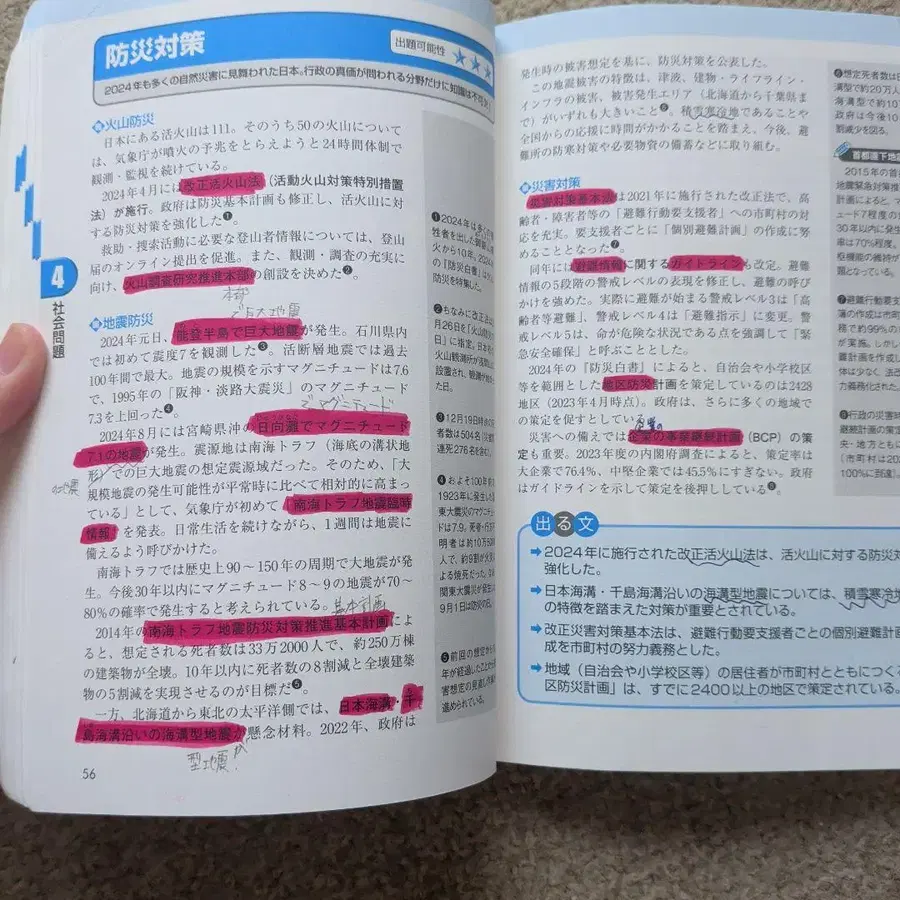 防災対策
出題可能性 ★★★
2024年も多くの自然災害に見舞われた日本。行政の真価が問われる分野だけに知識は不可欠
火山防災
日本にある活火山は111。そのうち50の火山について
は、気象庁が噴火の予兆をとらえようと24時間体制で
観測・監視を続けている。
2024年4月には改正活火山法(活動火山対策特別措置
法)が施行。政府は防災基本計画も修正し、活火山に対
する防災対策を強化した❶。
救助・捜索活動に必要な登山者情報については、登山
届のオンライン提出を促進。また、観測・調査の充実に
向け、火山調査研究推進本部の創設を決めた❷。
本部
地震防災
で巨大地震
2024年元日、能登半島で巨大地震が発生。石川県内
では初めて震度7を観測した❸。活断層地震では過去
100年間で最大。地震の規模を示すマグニチュードは7.6
で、1995年の「阪神・淡路大震災」のマグニチュード
7.3を上回った❹。
マグニチュード
2024年8月には宮崎県沖の日向灘でマグニチュード
7.1の地震が発生。震源地は南海トラフ(海底の溝状地
形)での巨大地震の想定震源域だった。そのため、「大
の地震
規模地震の発生可能性が平常時に比べて相対的に高まっ
ている」として、気象庁が初めて「南海トラフ地震臨時
情報」を発表。日常生活を続けながら、1週間は地震に
備えるよう呼びかけた。
南海トラフでは歴史上90～150年の周期で大地震が発
生。今後30年以内にマグニチュード8～9の地震が70～
80%の確率で発生すると考えられている。
基本計画
2014年の南海トラフ地震防災対策推進基本計画によ
ると、想定される死者数は33万2000人で、約250万棟
の建築物が全壊。10年以内に死者数の8割減と全壊建築
物の5割減を実現させるのが目標だ❺。
一方、北海道から東北の太平洋側では、日本海溝・千
島海溝沿いの海溝型地震が懸念材料。2022年、政府は
型地震が
56
4
社会問題
❶2024年は多く
❷もちなみに改正
月26日を「火山防
に指定。
❸12月19日時点
者数は504名(災害関
連死276名を含む)
❹およそ100年前
1923年に発生した
東大震災のマグニチュ
ードは7.9。死者・行方
明者は約10万5000
人で、約9割が火災に
よる焼死だった。
9月1日は防災の日。
❺前回の想定から
年が経過したことから
害想定の見直し作業
進められている。
発生時の被害想定を基に、防災対策を公表した。
この地震被害の特徴は、津波、建物・ライフライン・
インフラの被害、被害発生エリア(北海道から千葉県ま
で)がいずれも大きいこと❻。積雪寒冷地であることや
全国からの応援に時間がかかることを踏まえ、今後、避
難所の防寒対策や必要物資の備蓄などに取り組む。
災害対策
災害対策基本法は2021年に施行された改正法で、高
齢者・障害者等の「避難行動要支援者」への市町村の対
応を充実。要支援者ごとに「個別避難計画」の作成に努
めることとなった❼。
同年には避難情報に関するガイドラインも改定。避難
情報の5段階の警戒レベルの表現を修正し、避難の呼び
かけを強めた。実際に避難が始まる警戒レベル3は「高
齢者等避難」、警戒レベル4は「避難指示」に変更。警
戒レベル5は、命が危険な状況である点を強調して「緊
急安全確保」と呼ぶこととした。
2024年の『防災白書』によると、自治会や小学校区
等を範囲とした地区防災計画を策定しているのは2428
地区(2023年4月時点)。政府は、さらに多くの地域で
の策定を促すとしている。
企業の
災害への備えでは企業の事業継続計画(BCP)の策
定も重要。2023年度の内閣府調査によると、策定率は
大企業で76.4%、中堅企業では45.5%にすぎない。政府
はガイドラインを示して策定を後押ししている❽。
出る文
➡2024年に施行された改正活火山法は、活火山に対する防災対
強化した。
➡日本海溝・千島海溝沿いの海溝型地震については、積雪寒冷地
の特徴を踏まえた対策が重要とされている。
➡改正災害対策基本法は、避難行動要支援者ごとの個別避難計画
成を市町村の努力義務とした。
➡地域(自治会や小学校区等)の居住者が市町村とともにつくる
区防災計画」は、すでに2400以上の地区で策定されている。
❻想定死者数は
溝型で約20万人
海溝型で約10
政府は今後10
割減少を図る。
首都直下地震
2015年の首
地震緊急対策推
計画によると、マ
ュード7程度の
30年以内に発生
率は70%程度。
枢機能の維持が
題となっている。
❼避難行動要支
簿の作成は市町
務で約99%の
が実施。しかし
置計画を作成し
体は少なく、法改
力義務化された
❽行政の災害時
継続計画の策定
央・地方ともに
(市町村は202
100%に到達)。